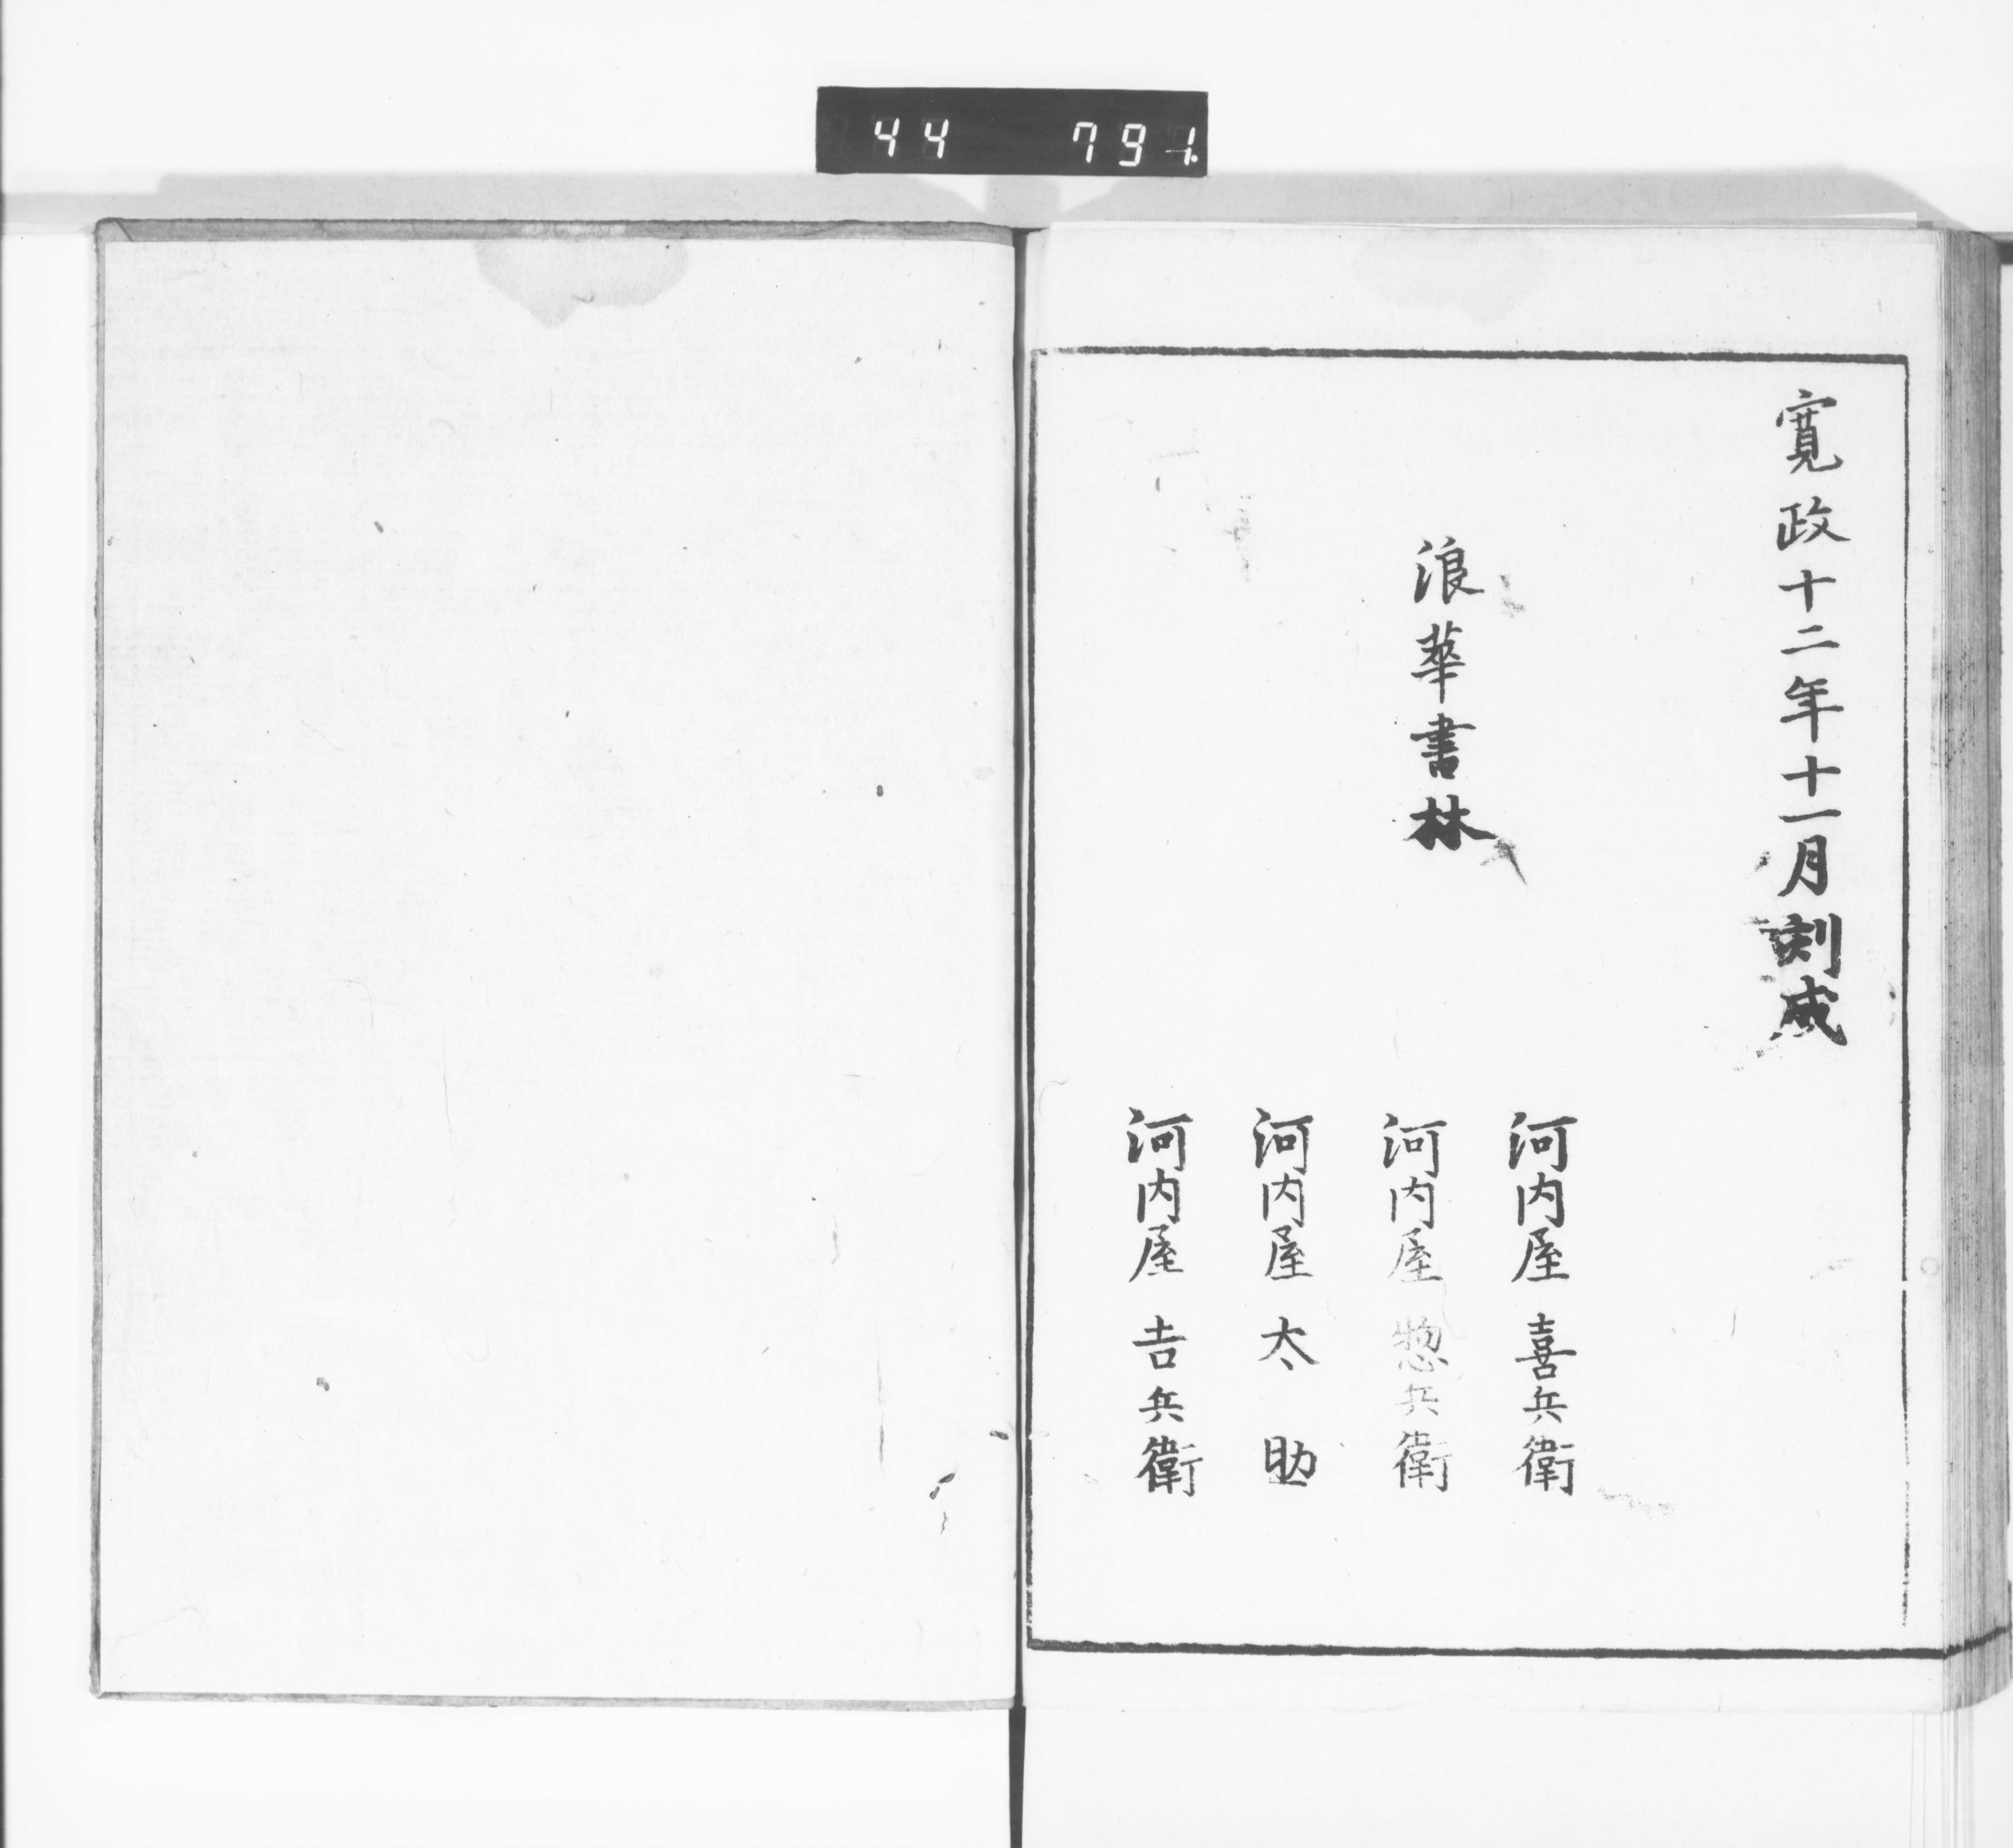 44 791.
寛政十二年十一月刻成
浪華書林
河内屋 喜兵衛
河内屋 惣兵衛
河内屋 太助
河内屋 吉兵衛